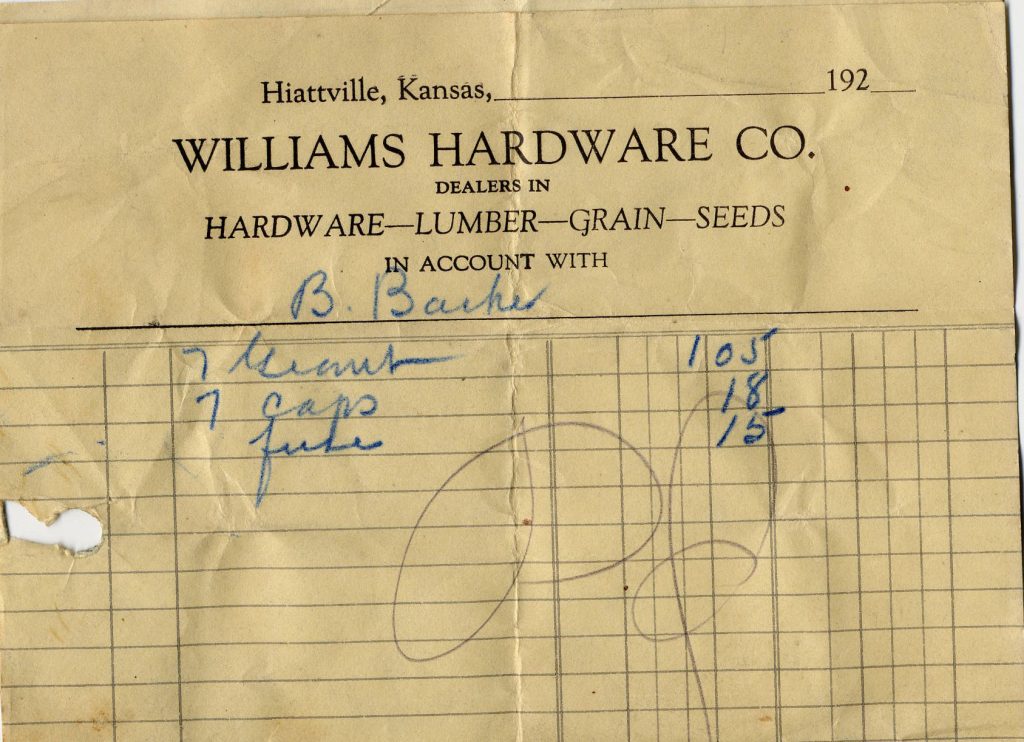 Hiattville, Kansas, 192
WILLIAMS HARDWARE CO.
DEALERS IN
HARDWARE—LUMBER—GRAIN—SEEDS
IN ACCOUNT WITH
B. Barker
7 Giant 1 05
7 caps 18
fuse 15